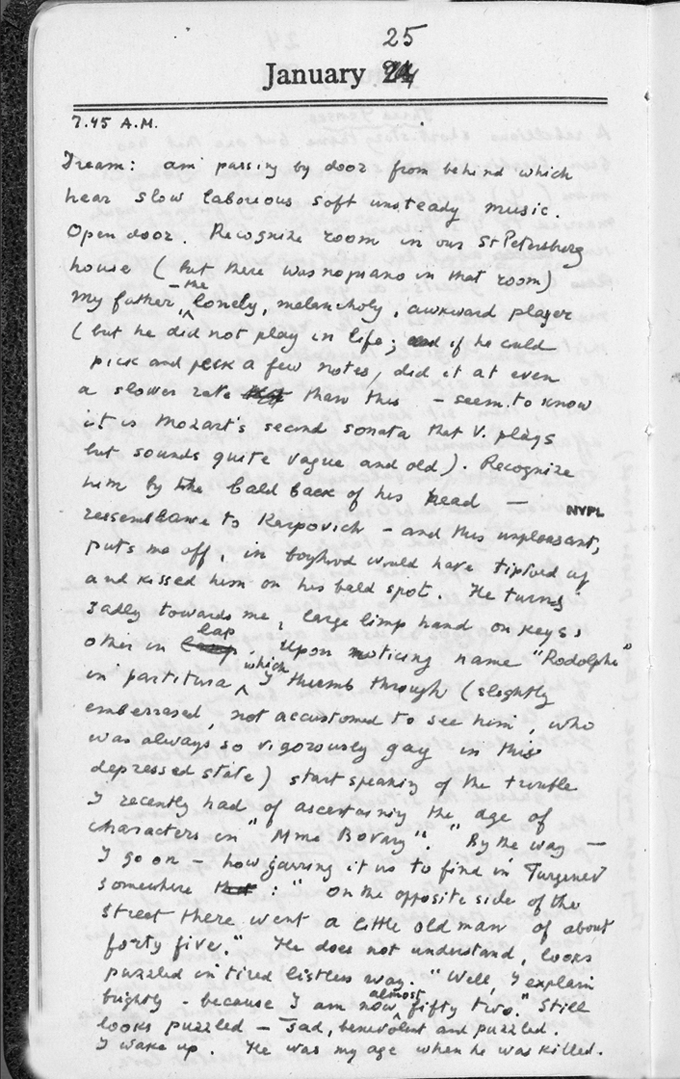 25
January 24
7.45 A.M.
Dream: am passing by door from behind which
hear slow laborious soft unsteady music.
Open door. Recognize room in our St Petersburg
house (but there was no piano in that room)
My father, – the lonely, melancholy, awkward player
(but he did not play in life; and if he could
pick and peck a few notes, did it at even
a slower rate than this – seem to know
it is Mozart's second sonata that V. plays
but sounds quite vague and old). Recognize
him by the bald back of his head –
NYPL
ressemblance to Karpovich – and this unpleasant,
puts me off, in boyhood would have tiptoed up
and kissed him on his bald spot. He turns
sadly towards me, large limp hand on keys,
other in lap. Upon noticing name "Rodolphe"
in partitura which I thumb through (slightly
emberrased, not accustomed to see him, who
was always so vigorously gay in this
depressed state) start speaking of the trouble
I recently had of ascertaining the age of
characters in "Mme Bovary". "By the way –
I go on – how jarring it is to find in Turgenev
somewhere : "on the opposite side of the
street there went a little old man of about
forty five." He does not understand, looks
puzzled in tired listless way. "Well, I explain
brightly – because I am now almost fifty two." Still
looks puzzled – sad, benevolent and puzzled.
I wake up. He was my age when he was killed.